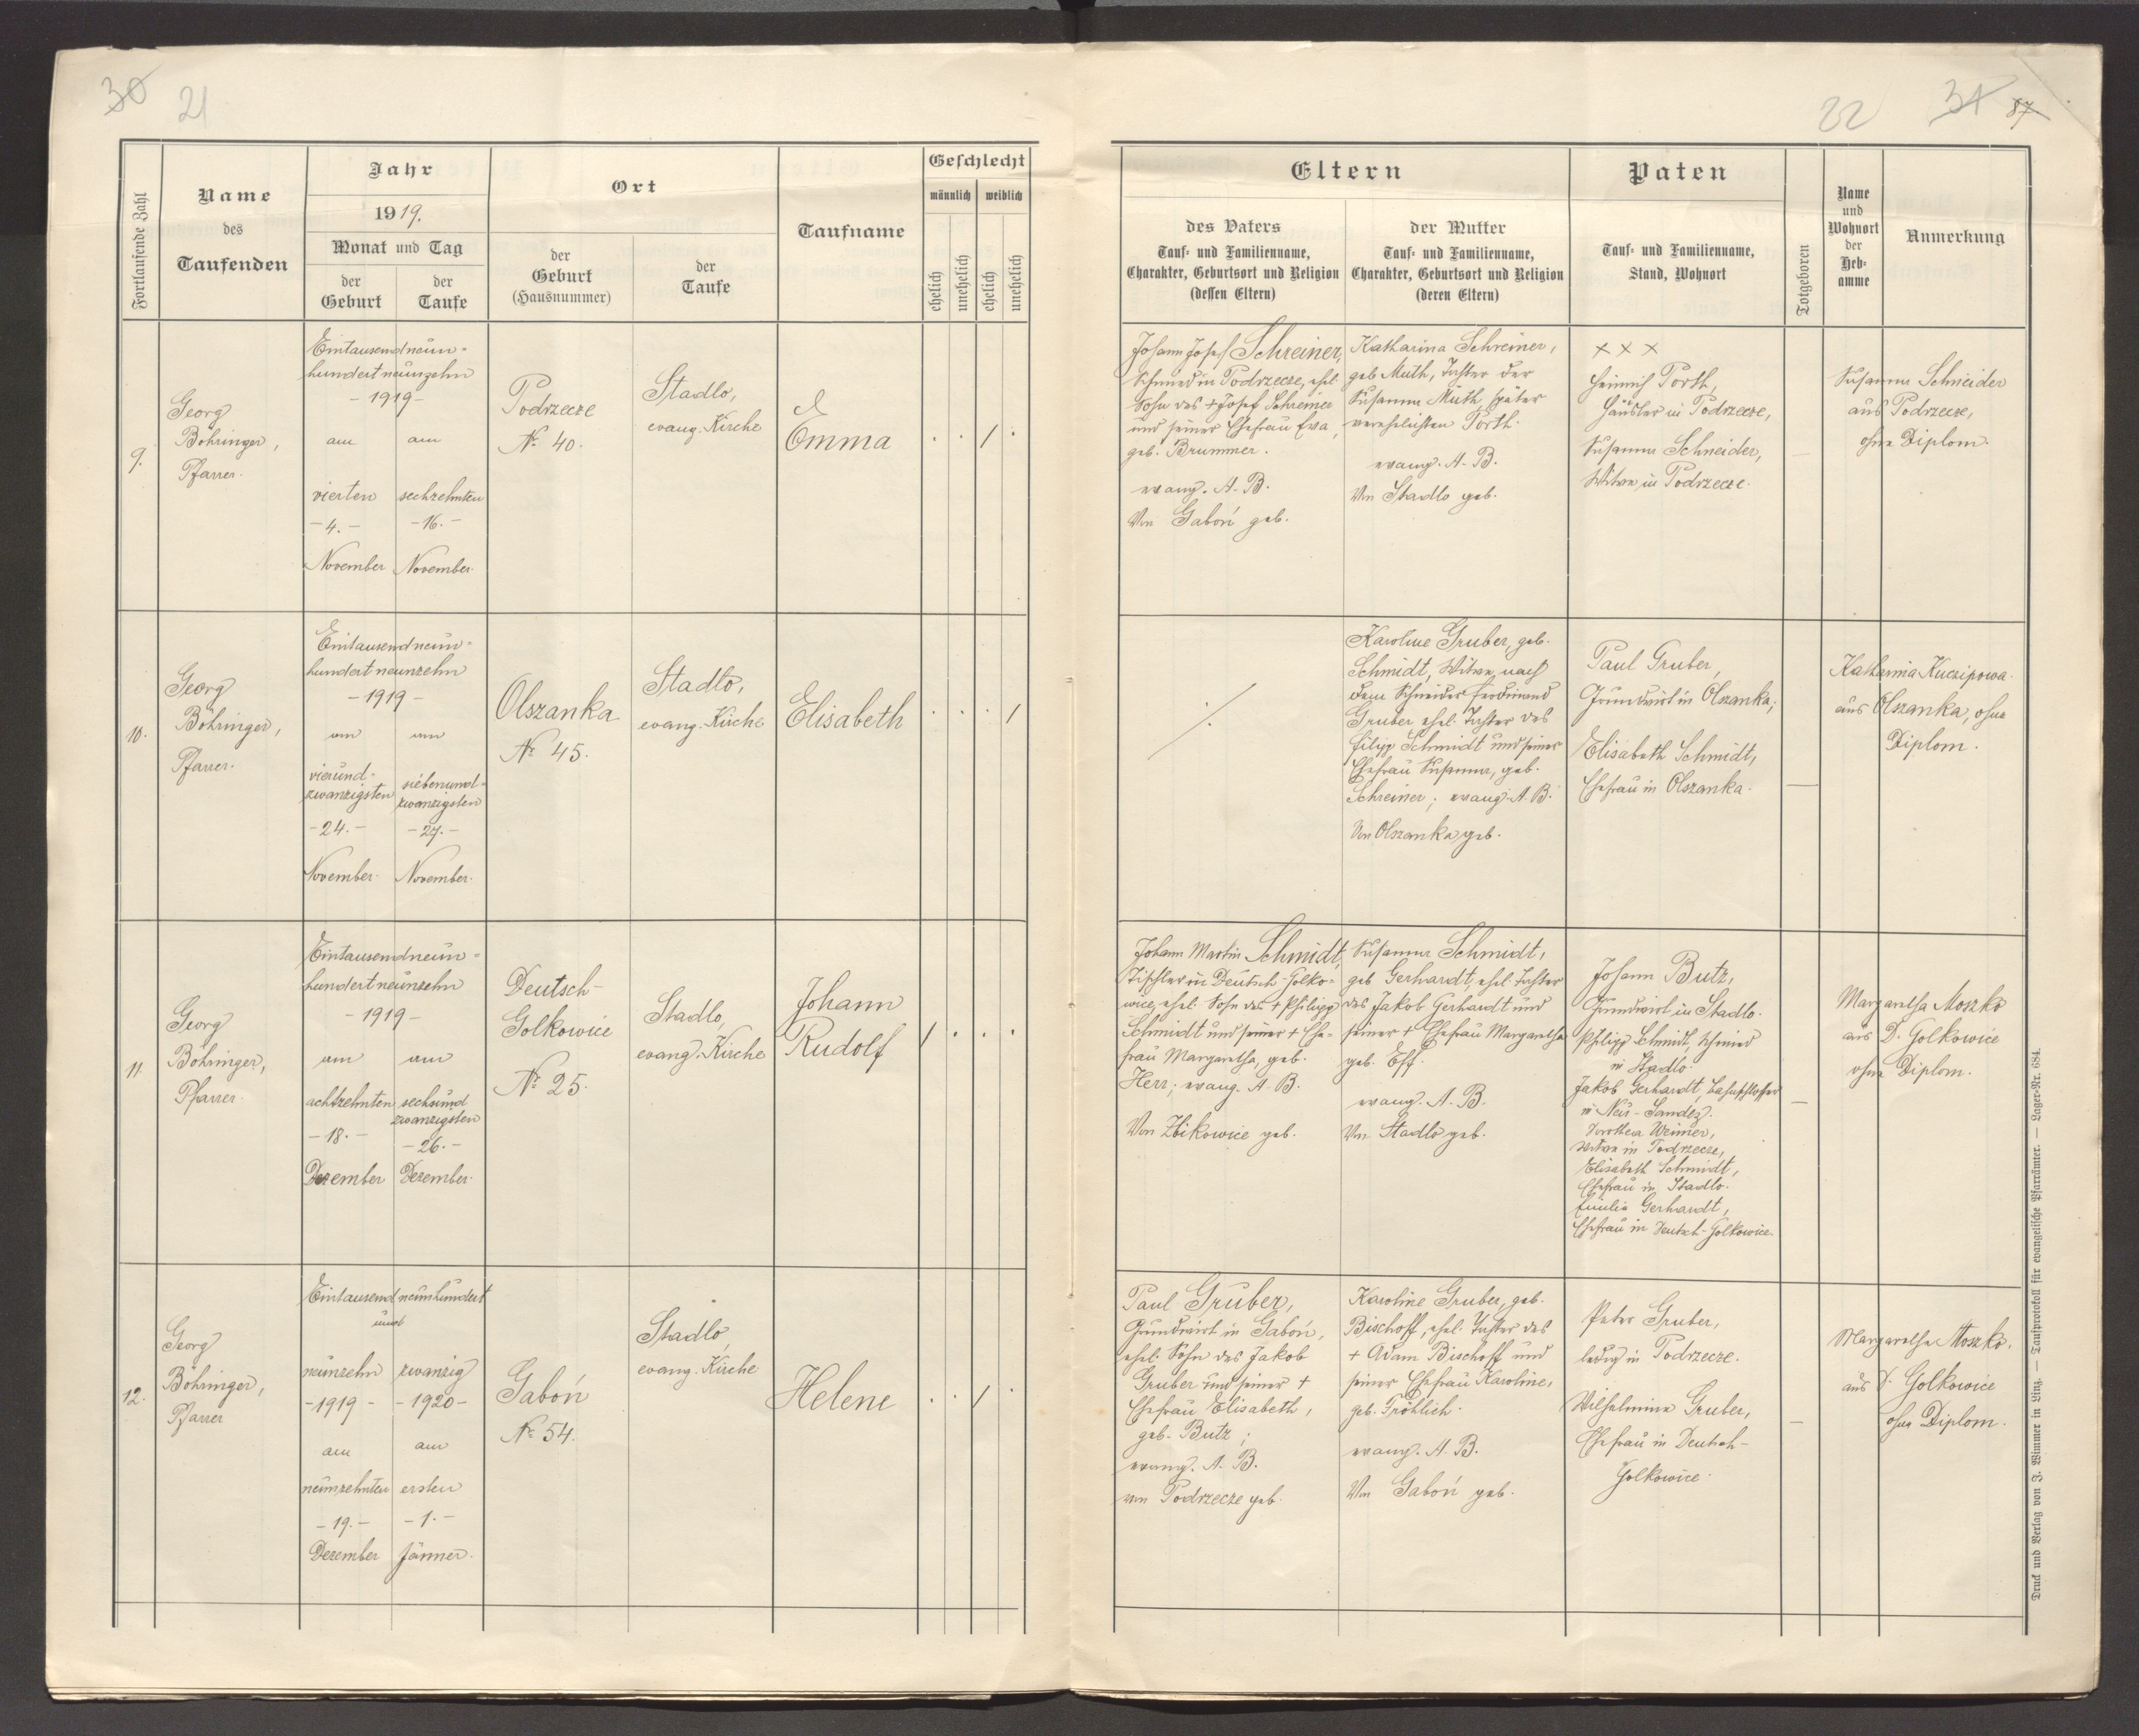 30 21
22 31 87
Fortlaufende Zahl
Name
des
Taufenden
Jahr
1919.
Monat und Tag
der
Geburt
der
Taufe
Ort
der
Geburt
(Hausnummer)
der
Taufe
Taufname
Geschlecht
männlich weiblich
ehelich
unehelich
ehelich
unehelich
Eltern
des Vaters
Tauf- und Familienname,
Charakter, Geburtsort und Religion
(dessen Eltern)
der Mutter
Tauf- und Familienname,
Charakter, Geburtsort und Religion
(deren Eltern)
Paten
Tauf- und Familienname,
Stand, Wohnort
Totgeboren
Name
und
Wohnort
der
Heb-
amme
Anmerkung
9.
Georg
Böhringer,
Pfarrer.
Eintausendneun-
hundertneunzehn
- 1919 -
am
vierten
- 4. -
November
am
sechzehnten
- 16. -
November.
Podrzecze
No 40.
Stadlo,
evang. Kirche
Emma
Johann Josef Schreiner,
Schmied in Podrzecze, ehel.
Sohn des + Josef Schreiner
und seiner Ehefrau Eva,
geb. Brummer.
evang. A. B.
Von Gaboń geb.
Katharina Schreiner,
geb Muth, Tochter der
Susanna Muth, später
verehelichten Porth.
evang. A. B.
Von Stadlo geb.
x x x
Heinrich Porth,
Häusler in Podrzecze,
Susanna Schneider,
Witwe, in Podrzecze.
Susanna Schneider
aus Podrzecze,
ohne Diplom.
10.
Georg
Böhringer,
Pfarrer.
Eintausendneun-
hundertneunzehn
- 1919 -
am
vierund-
zwanzigsten
- 24. -
November.
am
siebenund-
zwanzigsten
- 27. -
November.
Olszanka
No 45.
Stadlo,
evang. Kirche
Elisabeth
Karoline Gruber, geb.
Schmidt, Witwe nach
dem Schneider Ferdinand
Gruber ehel. Tochter des
Filipp Schmidt und seiner
Ehefrau Susanna, geb.
Schreiner; evang. A. B.
Von Olszanka geb.
Paul Gruber,
Grundwirt in Olszanka;
Elisabeth Schmidt,
Ehefrau in Olszanka.
Katharina Kuczipowa
aus Olszanka, ohne
Diplom.
11.
Georg
Böhringer,
Pfarrer.
Eintausendneun-
hundertneunzehn
- 1919 -
am
achtzehnten
- 18. -
Dezember
am
sechsund
zwanzigsten
- 26. -
Dezember.
Deutsch-
Golkowice
No 25.
Stadlo,
evang. Kirche
Johann
Rudolf
Johann Martin Schmidt,
Tischler in Deutsch-Golko-
wice, ehel. Sohn des + Philipp
Schmidt und seiner + Ehe-
frau Margaretha, geb.
Herr; evang. A. B.
Von Zbikowice geb.
Susanna Schmidt,
geb Gerhardt, ehel. Tochter
des Jakob Gerhardt und
seiner + Ehefrau Margaretha
geb. Eff.
evang. A. B.
Von Stadlo geb.
Johann Butz,
Grundwirt in Stadlo.
Philipp Schmidt, Schmied
in Stadlo.
Jakob Gerhardt, Bahnschlosser
in Neu-Sandez.
Dorothea Weimer,
Witwe in Podrzecze,
Elisabeth Schmidt,
Ehefrau in Stadlo.
Emilie Gerhardt,
Ehefrau in Deutsch-Golkowice.
Margaretha Moszko
aus D. Golkowice
ohne Diplom.
12.
Georg
Böhringer,
Pfarrer
Eintausend neunhundert
und
neunzehn
- 1919 -
am
neunzehnten
- 19. -
Dezember
zwanzig
- 1920 -
am
ersten
- 1. -
Jänner.
Gaboń
No 54.
Stadlo,
evang. Kirche
Helene
Paul Gruber,
Grundwirt in Gaboń,
ehel. Sohn des Jakob
Gruber und seiner +
Ehefrau Elisabeth,
geb. Butz;
evang. A. B.
von Podrzecze geb.
Karoline Gruber, geb.
Bischoff, ehel. Tochter des
+ Adam Bischoff und
seiner Ehefrau Karoline,
geb. Fröhlich.
evang. A. B.
Von Gaboń geb.
Peter Gruber,
ledig in Podrzecze.
Wilhelmine Gruber,
Ehefrau in Deutsch-
Golkowice.
Margaretha Moszko,
aus D. Golkowice
ohne Diplom.
Druck und Verlag von J. Wimmer in Linz. — Taufprotokoll für evangelische Pfarrämter. — Lager-Nr. 684.